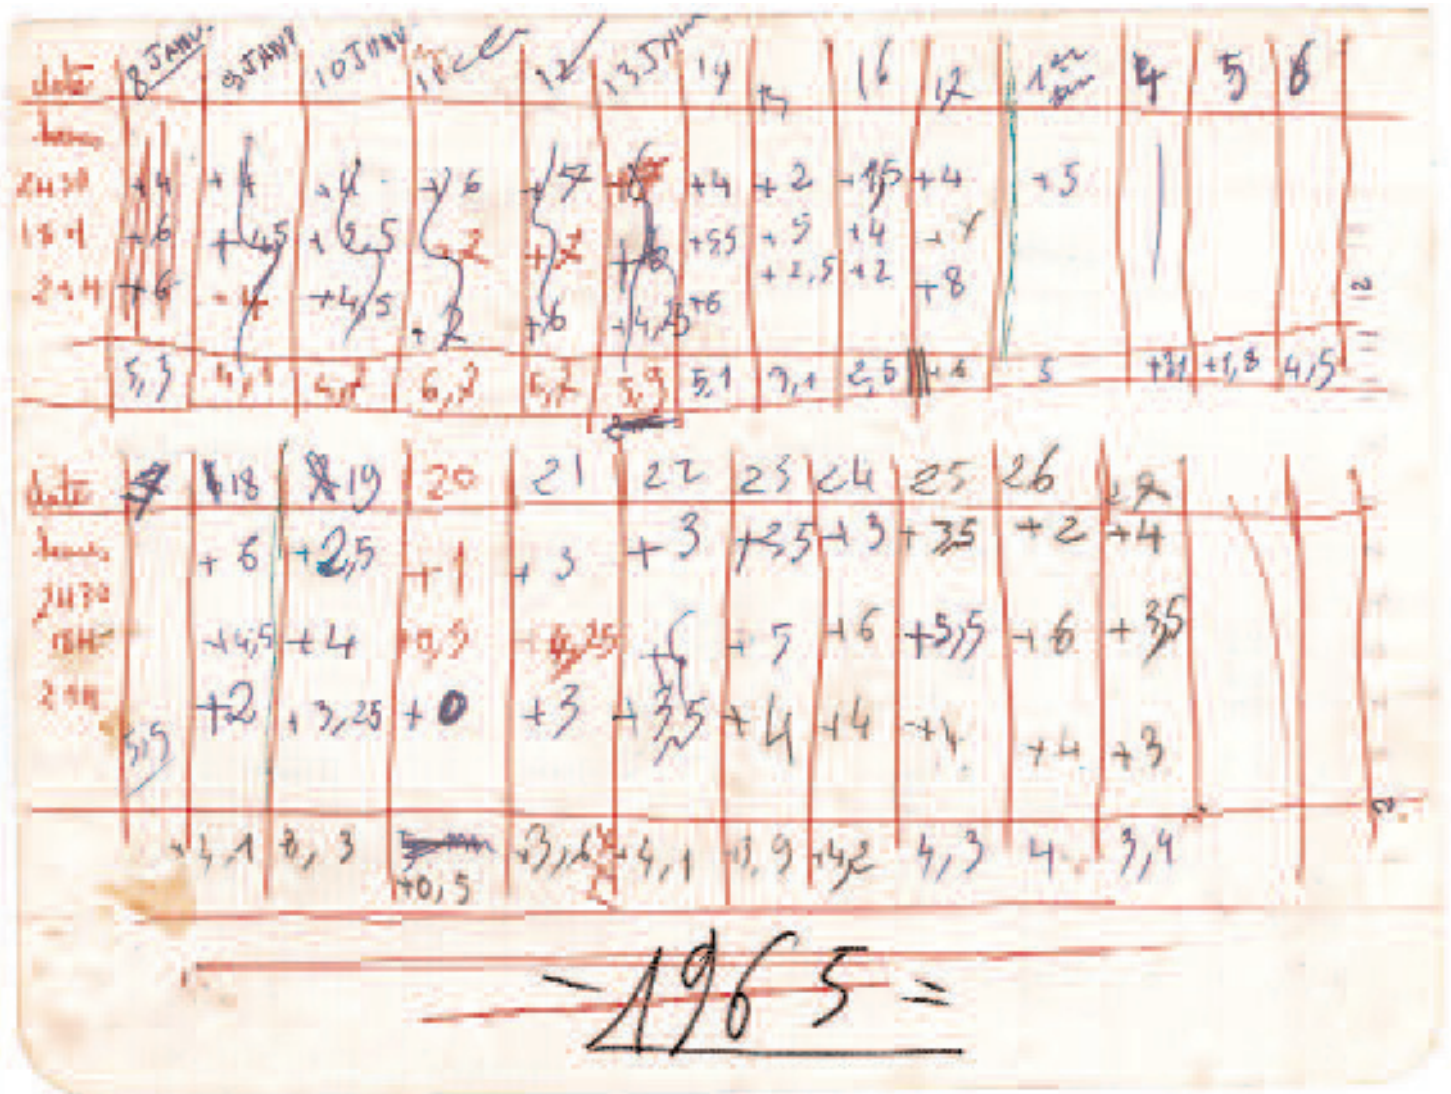 date 8 JANV. 9 JANV 10 JANV 11 12 13 JANV 14 16 17 1er 4 5 6
heures
+4 + +4 +6 +7 +4 +2 +1,5 +4 +5
18H +6 +4,5 +2,5 +2 +7 +6 +5,5 +5 +4 +7
21H +6 +4 +4,5 +2 +6 +4,25 +6 +2,5 +2 +8
5,3 6,2 5,9 5,1 3,1 2,5 5 +3,1 +1,8 4,5
date 7 18 19 20 21 22 23 24 25 26 27
heures +6 +2,5 +1 +3 +3 +3,5 +3 +3,5 +2 +4
2H30
18H +4,5 +4 +0,5 +4,25 +6 +5 +6 +5,5 +6 +3,5
21H 5,5 +2 +3,25 +0 +3 +3,5 +4 +4 +4 +4 +3
+4,1 3 +3,6 +4,1 +3,9 +4,2 4,3 4 3,4
+0,5
-1965=